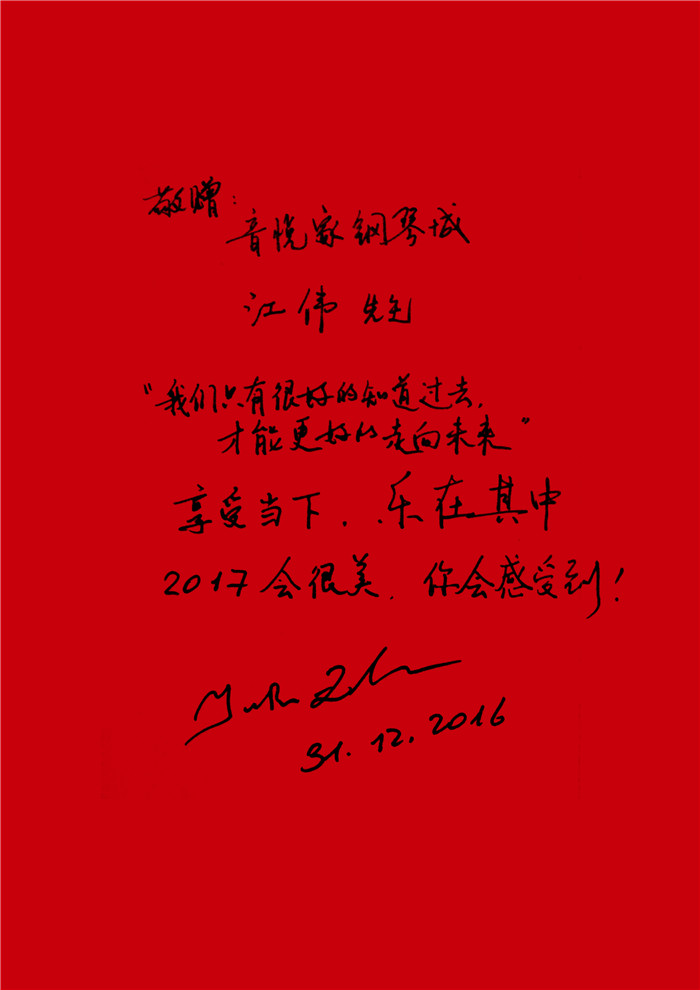 敬赠：
音悦家钢琴城
江伟 先生
"我们只有很好的知道过去，
才能更好的走向未来"
享受当下，乐在其中
2017会很美，你会感受到！
31.12.2016